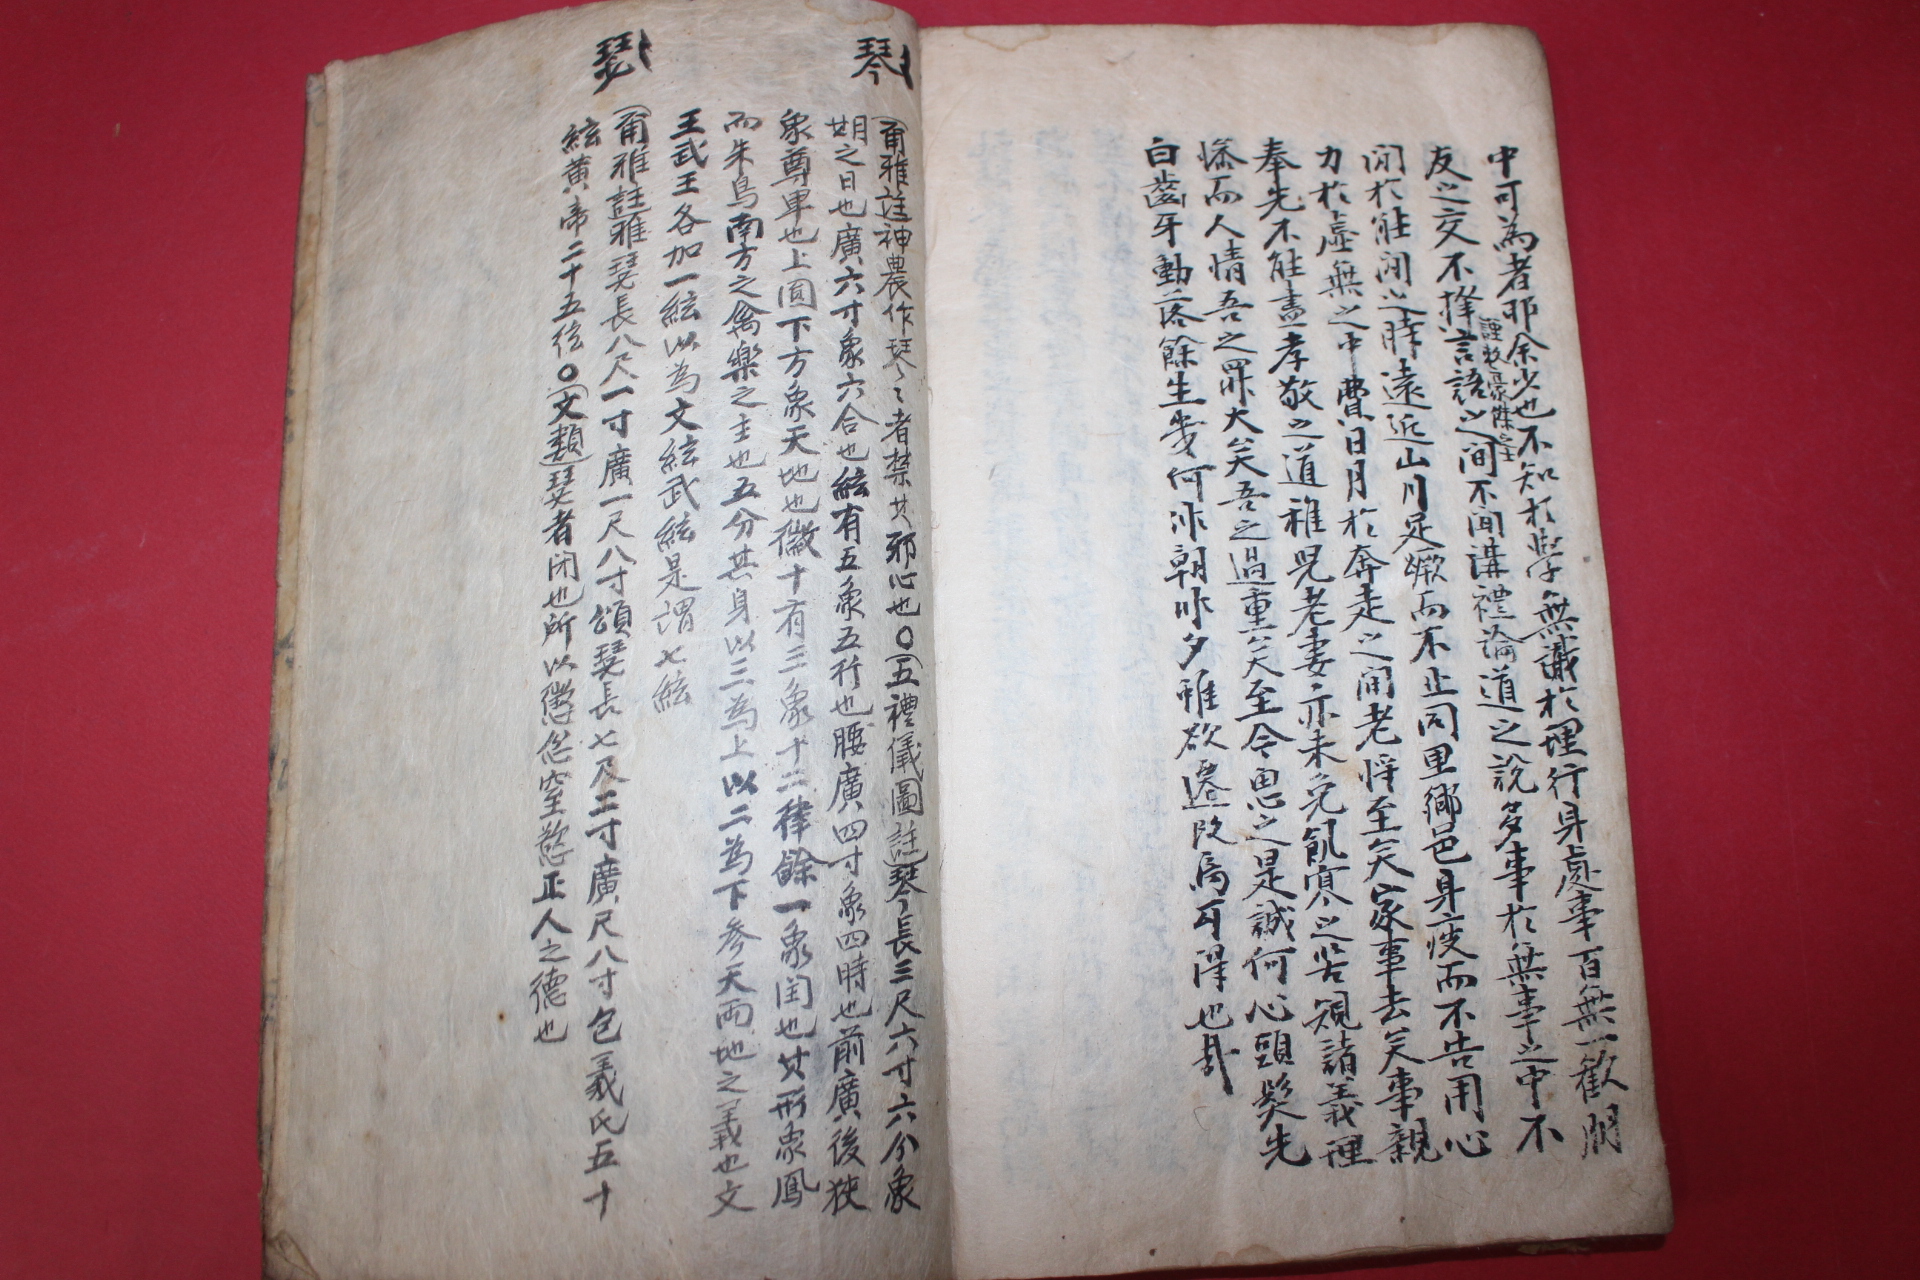 中可為者耶余少也不知於學無識於理行身處事百無一歡朋
友之交不擇言語之間不聞講禮論道之說多事於無事之中不
謹 豪傑之士
閑於能閑之時遠近山川足 而不止同里鄉邑身疲而不告用心
力於虛無之中費日月於奔走之間老將至矣家事去矣事親
奉先不能盡孝敬之道稚兒老妻亦未免飢寒之苦視諸義理
悖而人情吾之罪大矣吾之過重矣至今思之是誠何心頭髮先
白齒牙動落餘生幾何非朝非夕雖欲遷改焉可得也哉
琴
甫雅註神農作琴〻者禁其邪心也〇五禮儀圖註琴長三尺六寸六分象
期之日也廣六寸象六合也絃有五象五行也腰廣四寸象四時也前廣後狹
象尊卑也上圓下方象天地也徽十有三象十二律餘一象閏也其形象鳳
而朱鳥南方之禽樂之主也五分其身以三為上以二為下參天兩地之義也文
王武王各加一絃以為文絃武絃是謂七絃
瑟
甫雅註雅瑟長八尺一寸廣一尺八寸頌瑟長七尺二寸廣尺八寸包羲氏五十
絃黃帝二十五絃〇文類瑟者閉也所以懲忿窒慾正人之德也